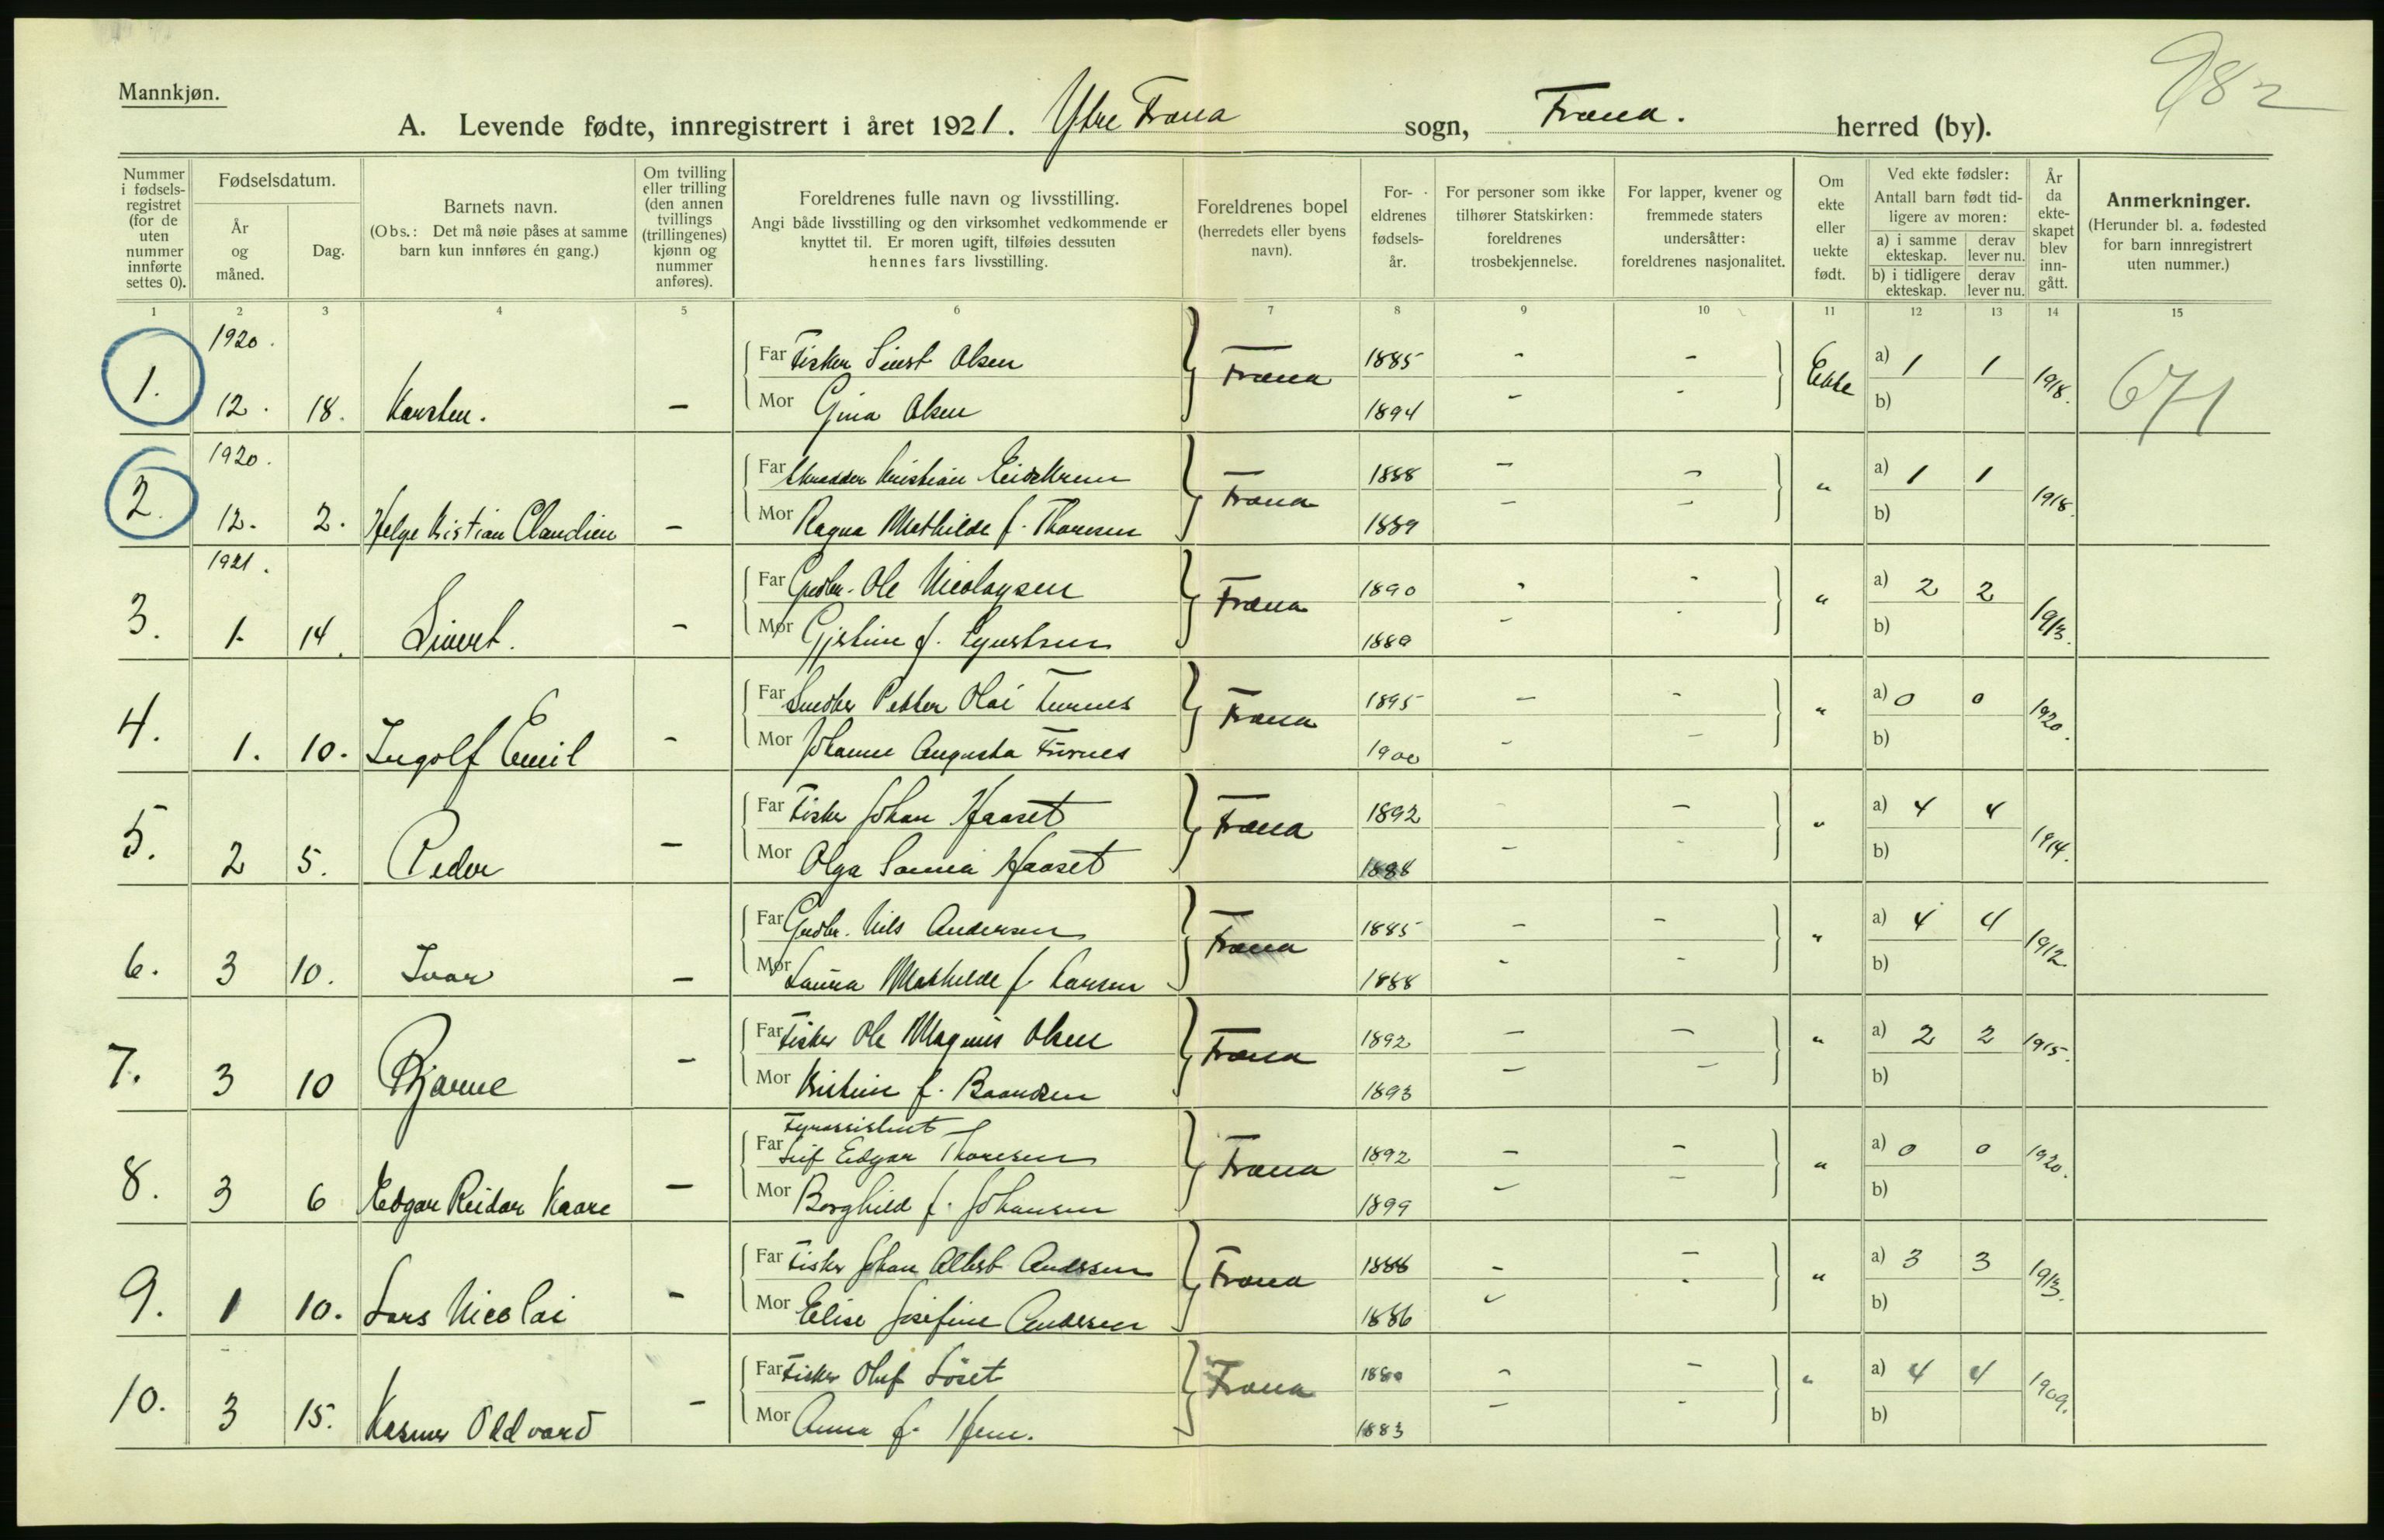 982
Mannkjøn.
A. Levende fødte, innregistrert i året 1921. Ytre Fræna sogn, Fræna. herred (by).
Nummer i fødsels-registret (for de uten nummer innførte settes 0).
Fødselsdatum.
År og måned.
Dag.
Barnets navn.
(Obs.: Det må nøie påses at samme barn kun innføres én gang.)
Om tvilling eller trilling (den annen tvillings (trillingenes) kjønn og nummer anføres).
Foreldrenes fulle navn og livsstilling.
Angi både livsstilling og den virksomhet vedkommende er knyttet til. Er moren ugift, tilføies dessuten hennes fars livsstilling.
Foreldrenes bopel (herredets eller byens navn).
For-eldrenes fødsels-år.
For personer som ikke tilhører Statskirken: foreldrenes trosbekjennelse.
For lapper, kvener og fremmede staters undersåtter: foreldrenes nasjonalitet.
Om ekte eller uekte født.
Ved ekte fødsler:
Antall barn født tid-ligere av moren:
a) i samme ekteskap. derav lever nu.
b) i tidligere ekteskap. derav lever nu.
År da ekte-skapet blev inn-gått.
Anmerkninger.
(Herunder bl. a. fødested for barn innregistrert uten nummer.)
1 2 3 4 5 6 7 8 9 10 11 12 13 14 15
1920.
Far Fisker Sivert Olsen 1885 - -
1. 12. 18. Karsten. - Fræna Ekte a) 1 1 1918. 671
Mor Gina Olsen 1894 - - b)
1920.
Far Skrædder Kristian Eidskrem 1888 - -
2. 12. 2. Helge Kristian Claudien - Fræna " a) 1 1 1918.
Mor Ragna Mathilde f. Thoresen 1889 - - b)
1921.
Far Grdbr. Ole Nicolaysen 1890 - -
3. 1. 14. Sivert. - Fræna " a) 2 2 1913.
Mor Gjertine f. 1889 - - b)
Far Petter Olai Furnes 1895 - -
4. 1. 10. Ingolf Emil - Fræna " a) 0 0 1920.
Mor Johanne Augusta Furnes 1900 - - b)
Far Fisker Johan Haaset 1892 - -
5. 2 5. Peder - Fræna " a) 4 4 1914.
Mor Olga Haaset 1888 - - b)
Far Grdbr. Nils Andersen 1885 - -
6. 3 10. Ivar - Fræna " a) 4 4 1912
Mor Laura Mathilde f. Larsen 1888 - - b)
Far Fisker Ole Magnus Olsen 1892 - -
7. 3 10 Bjarne - Fræna " a) 2 2 1915.
Mor Kristine f. 1893 - - b)
Fyrassistent
Far Leif Edgar Thoresen 1892 - -
8. 3 6 Edgar Reidar Kaare - Fræna " a) 0 0 1920.
Mor Borghild f. Johansen 1899 - - b)
Far Fisker Johan Albert Andersen 1886 - -
9. 1 10. Lars Nicolai - Fræna " a) 3 3 1913.
Mor Elise Josefine Andersen 1886 - - b)
Far Fisker Oluf Löset 1880 - -
10. 3 15. Kasmer Oddvard - Fræna " a) 4 4 1909.
Mor Anna f. Hem. 1883 - - b)